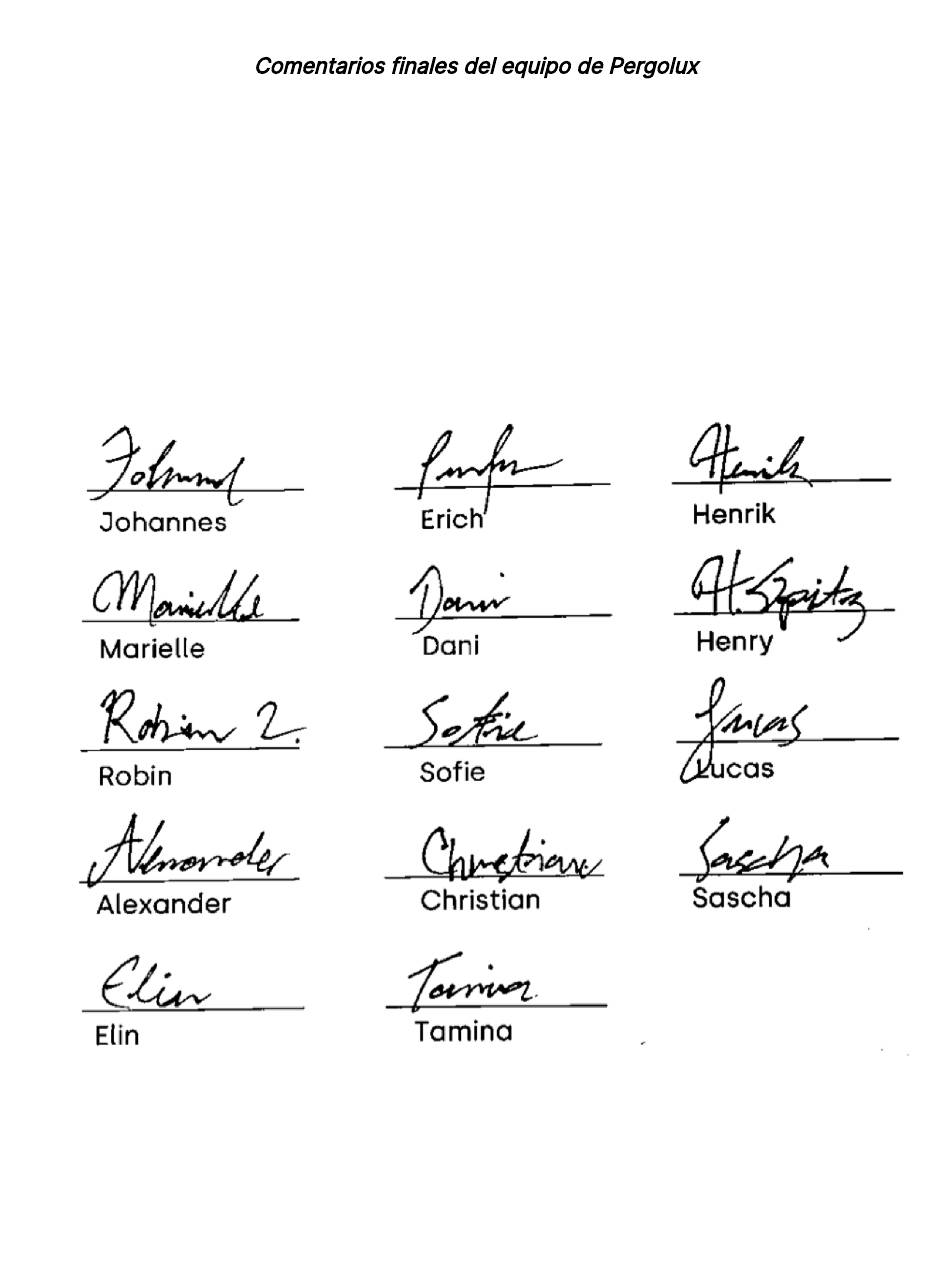 Comentarios finales del equipo de Pergolux
Johannes Erich Henrik
Marielle Dani H. Spitz
Johannes Erich Henrik
Marielle Dani Henry
Robin 2. Sofie Lucas
Robin Sofie Lucas
Alexander Christian Sascha
Alexander Christian Sascha
Elin Tamina
Elin Tamina